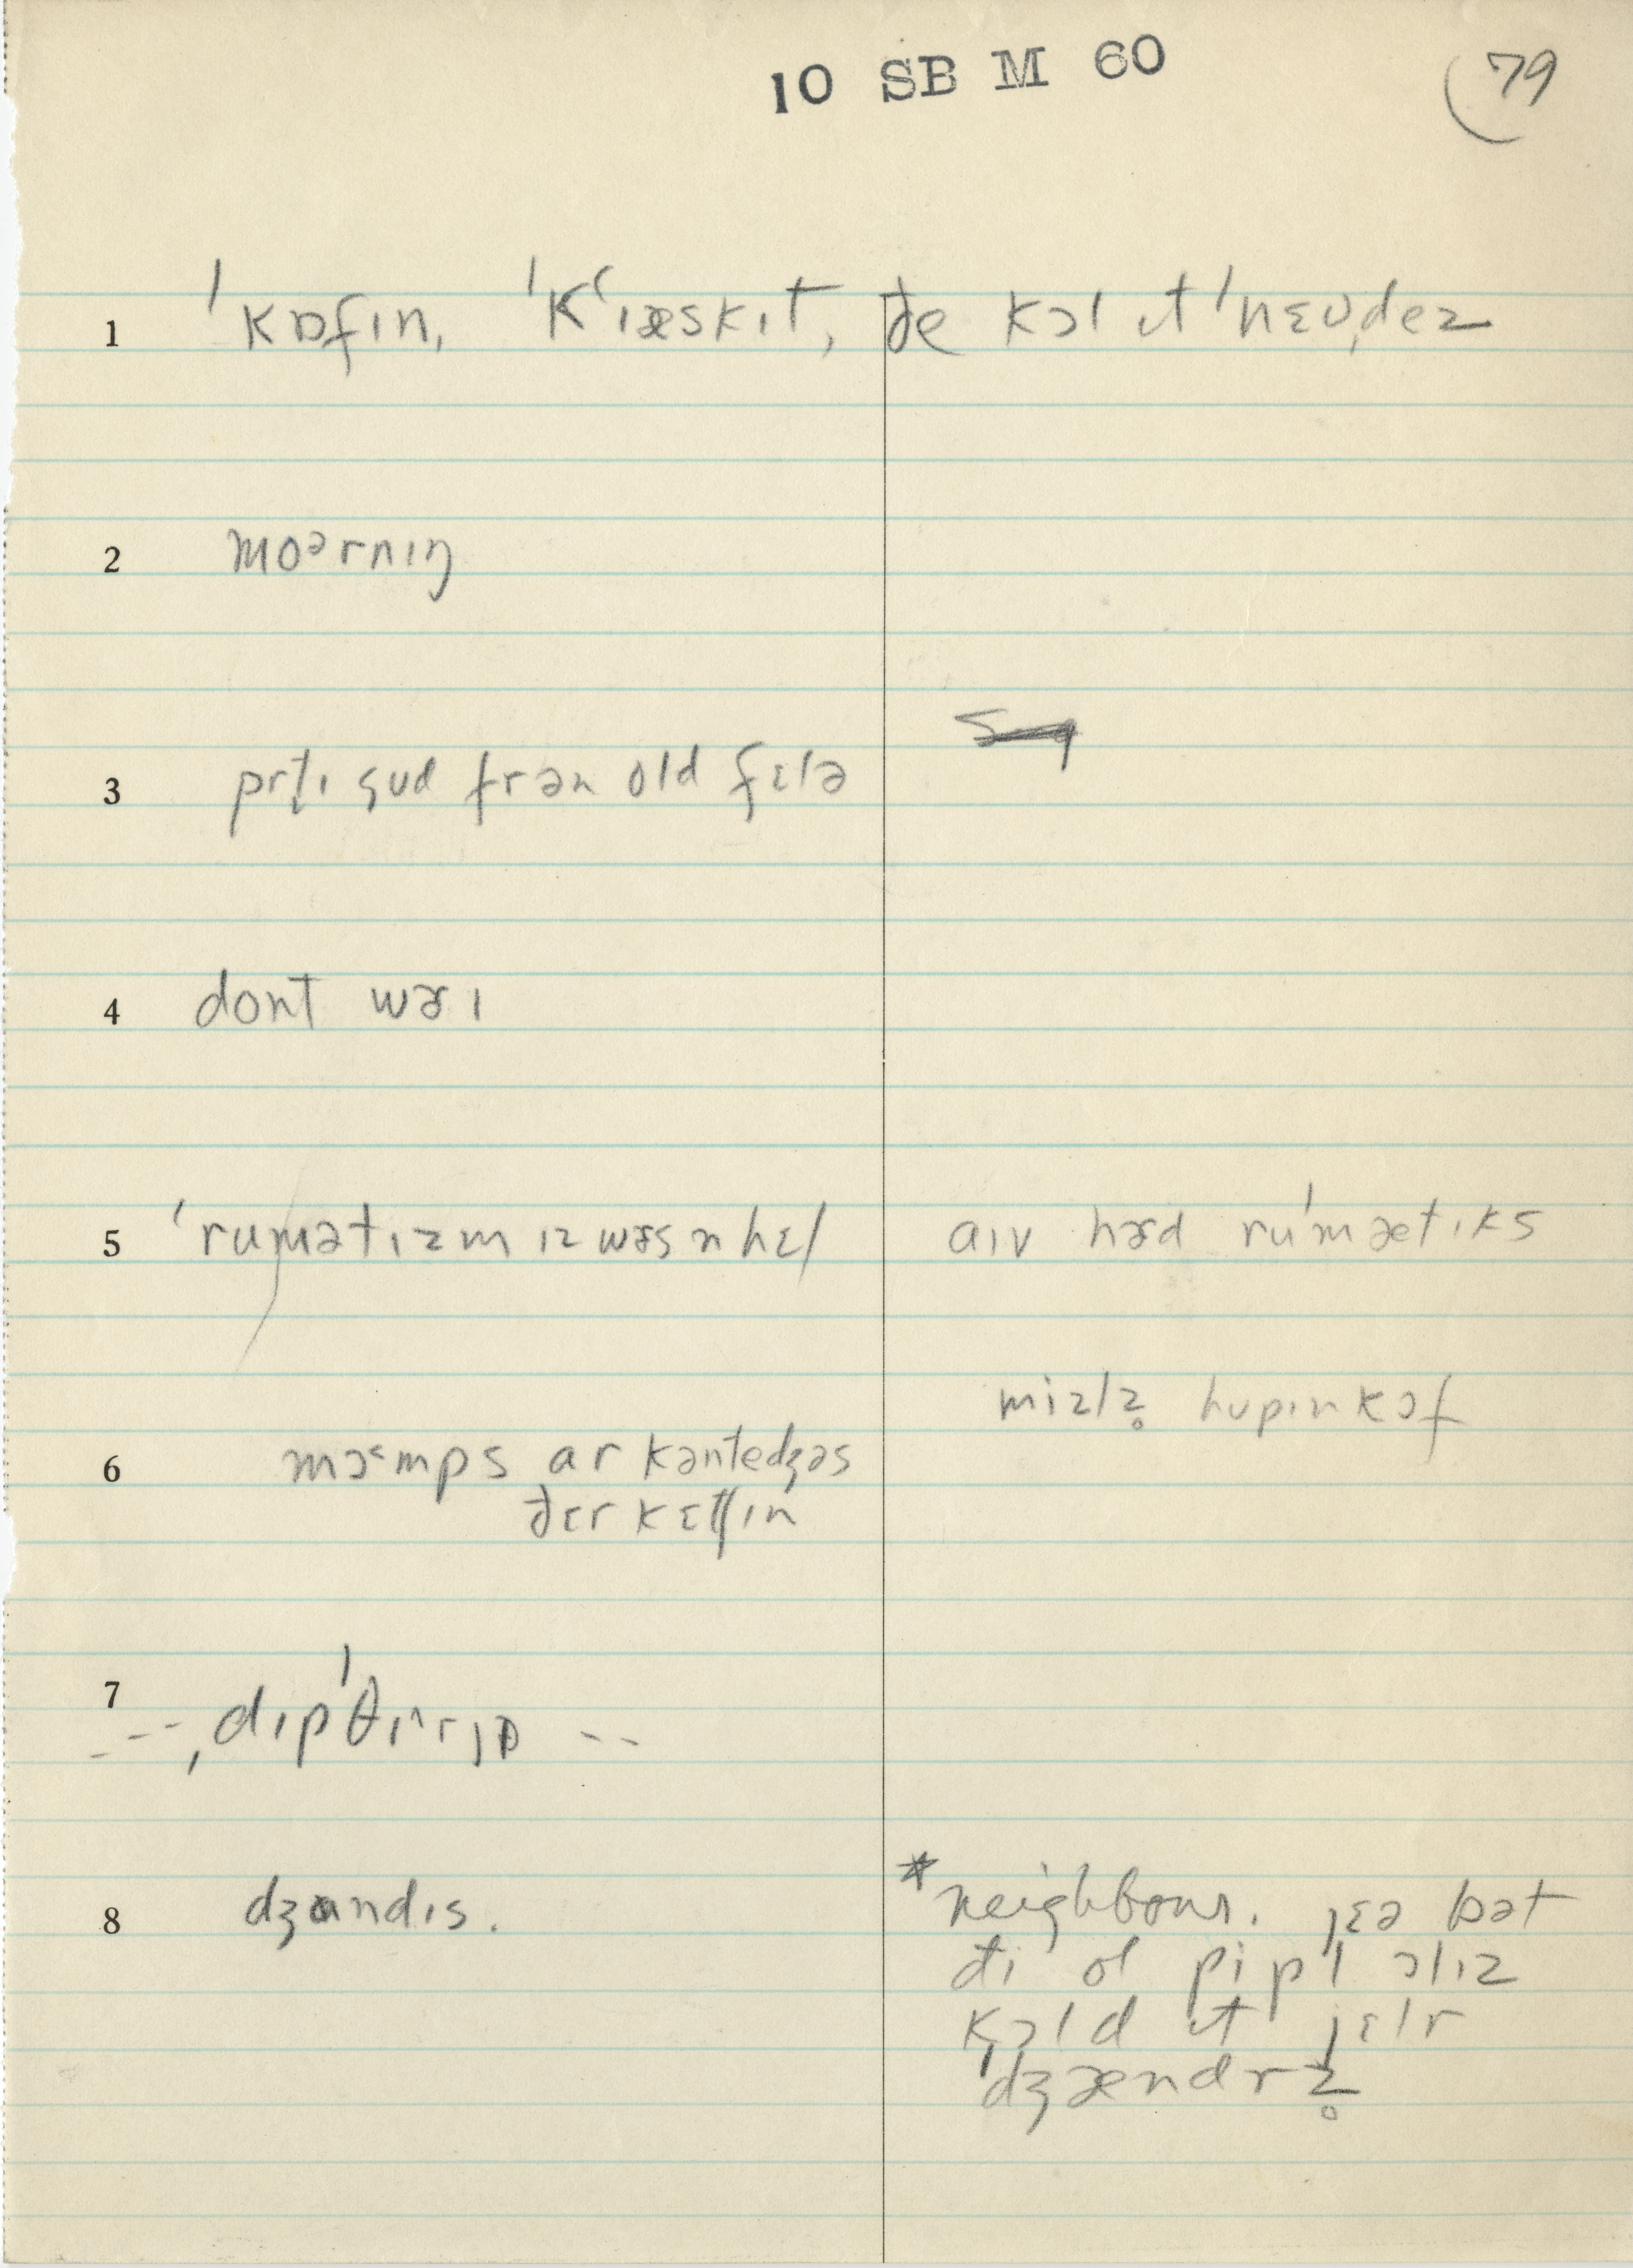 10 SB M 60
79
1 ˈkɒfin, ˈkʻɪæskɪt, ðe kɔl ɪt ˈnɛʊˌdez
2 moᵊrnɪŋ
3 prt̬ɪ gud frəm old fɛlə
4 dont wɚɪ
5 ˈrumətɪzm ɪz wɚs n hɛl aɪv hɚd ruˈmætɪks
mizlz̥ hupɪnkɔf
6 mə˞mps ar kəntedʒəs
ðɛr kɛtʃɪn
7 --ˌdɪpˈθɪ^rɪɒ --
8 dʒɑndɪs. *neighbour. jɛə bət
ði ol pipl ɔlɪz
kɔld ɪt jɛlr
ˈdʒændrz̥